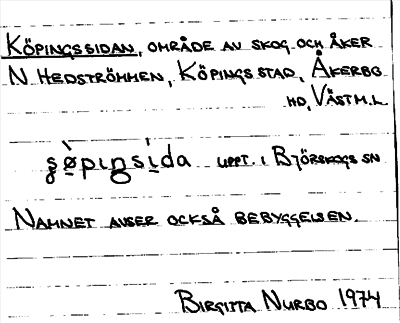 KÖPINGSSIDAN, OMRÅDE AV SKOG OCH ÅKER
N HEDSTRÖMMEN, KÖPINGS STAD, ÅKERBO
HD, VÄSTM.L.
UPPT. I BJÖRSKOGS SN
NAMNET AVSER OCKSÅ BEBYGGELSEN.
BIRGITTA NURBO 1974